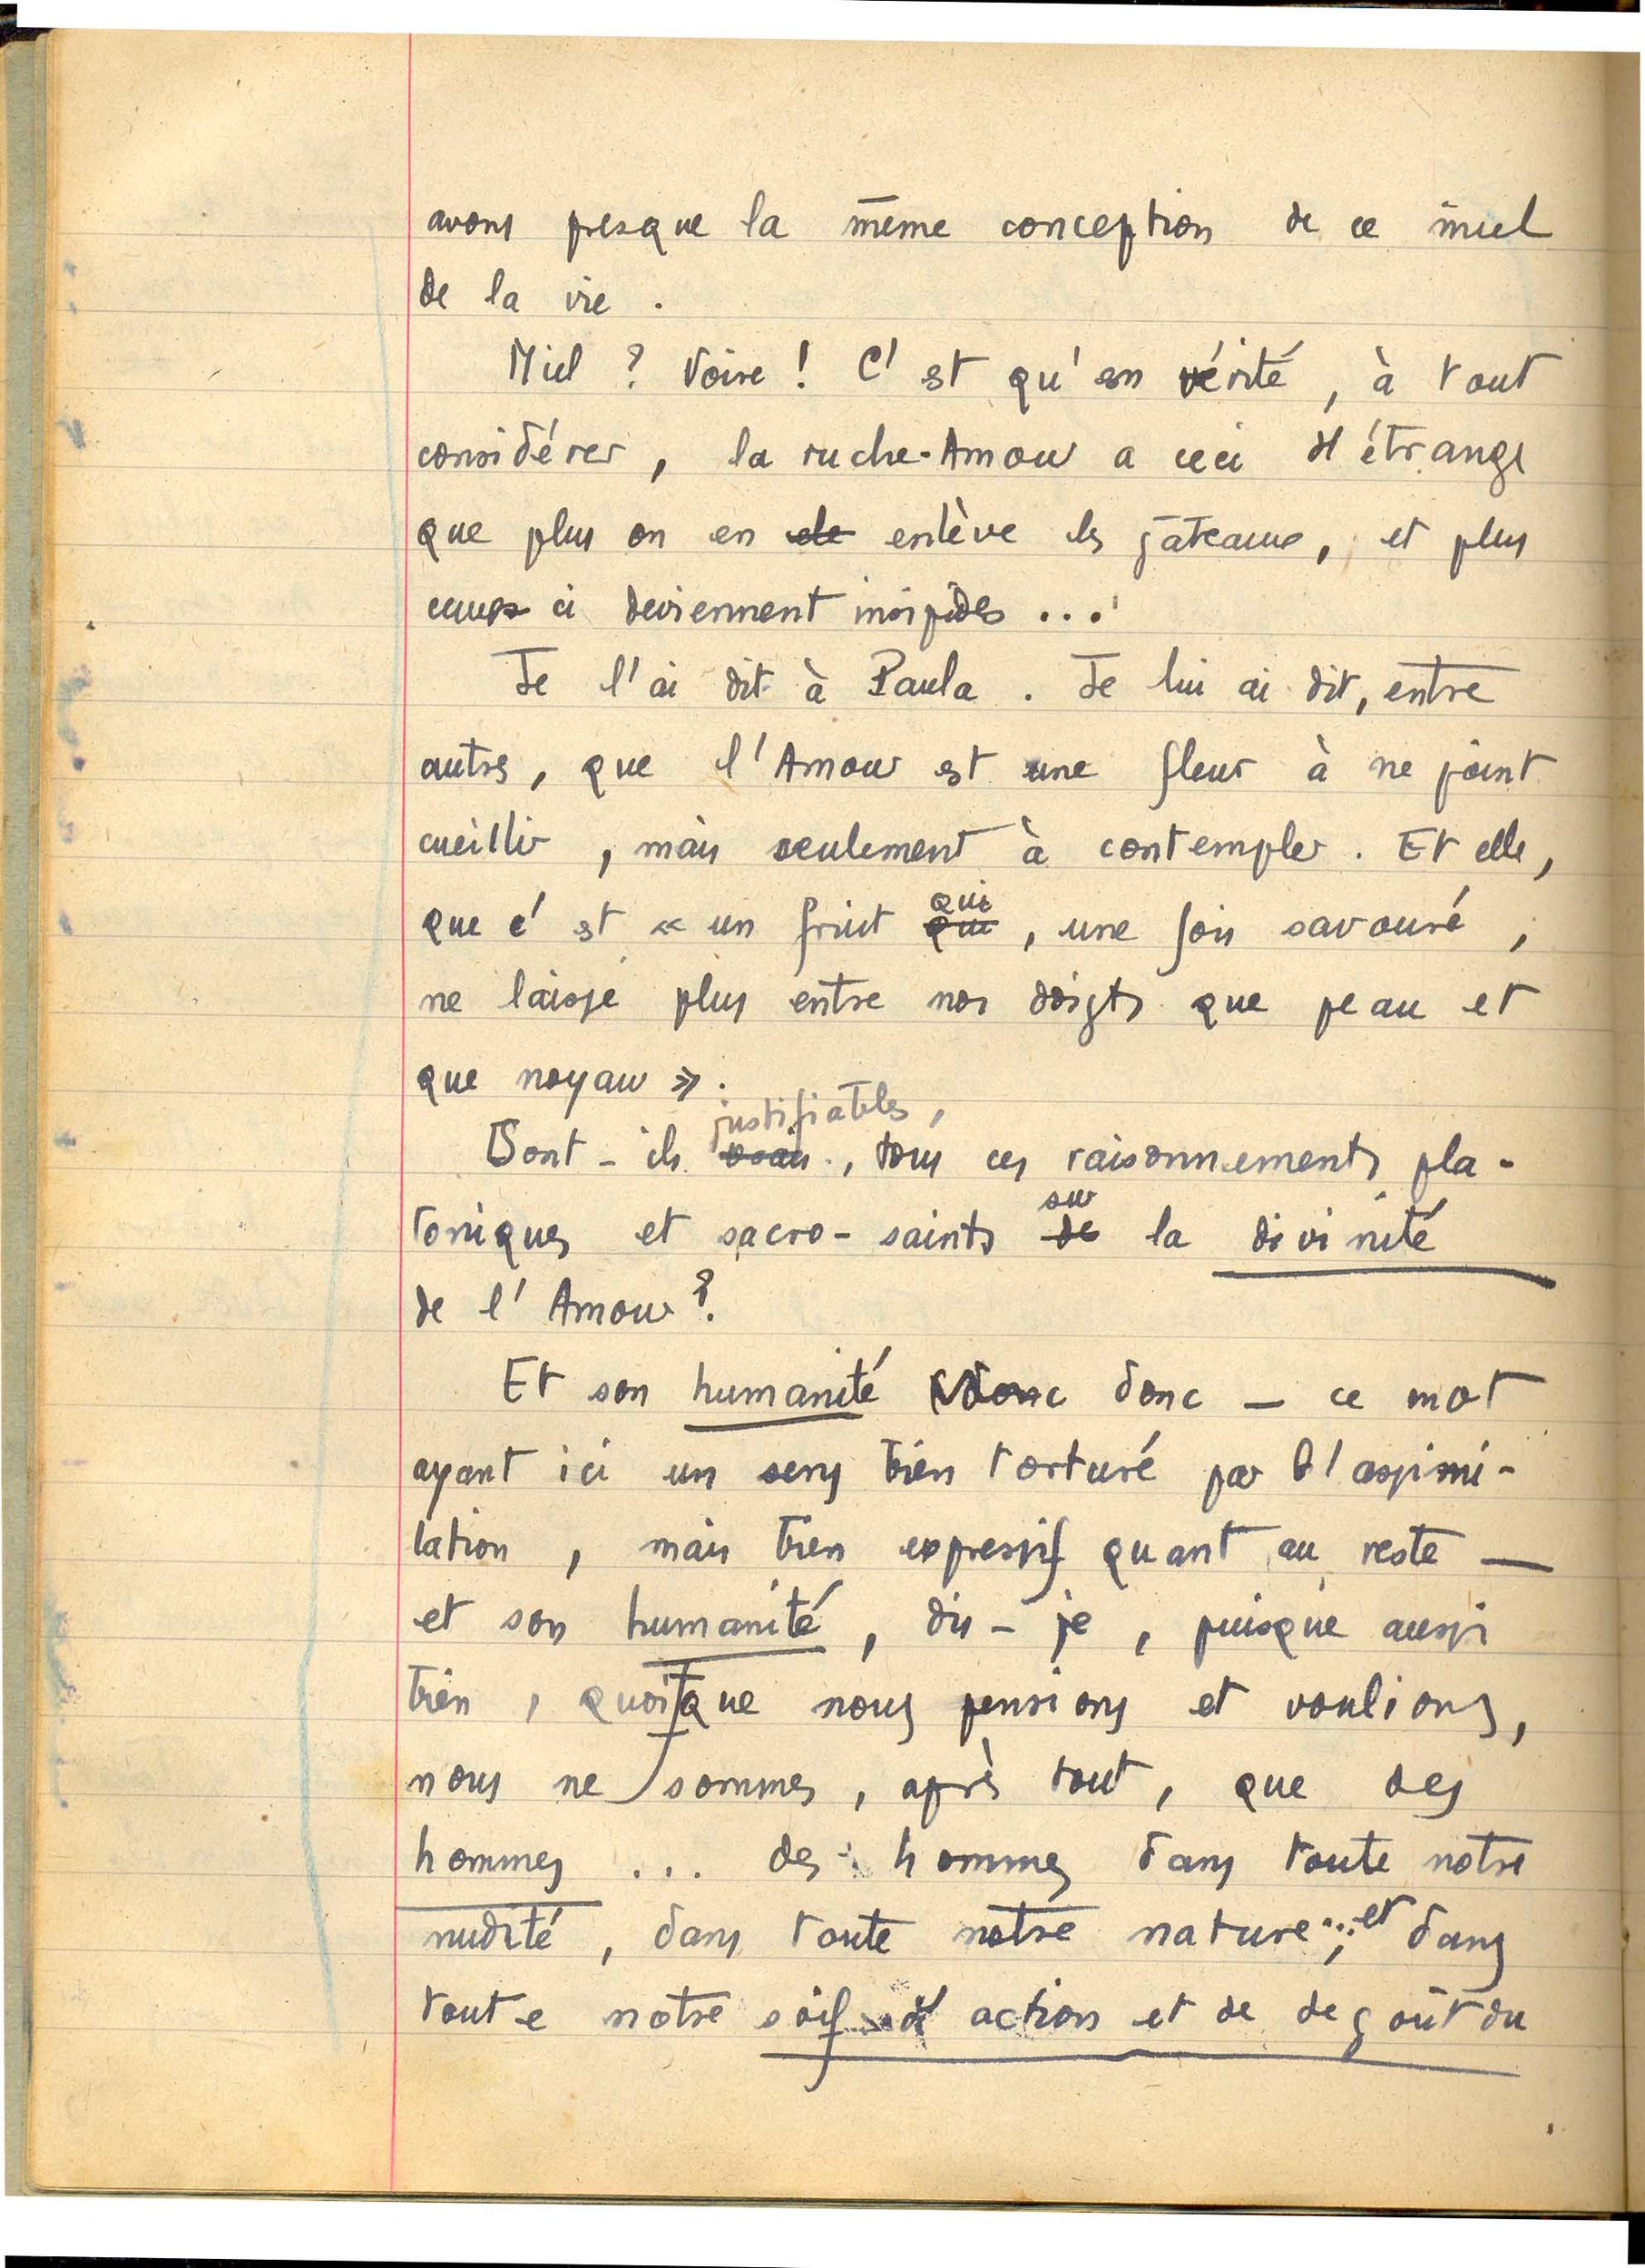 avons presque la même conception de ce miel
de la vie .
Miel ? Voire ! C'est qu'en vérité , à tout
considérer , la ruche-Amour a ceci d'étrange
que plus on en enlève les gâteaux , et plus
ceux ci deviennent insipides ...
Je l'ai dit à Paula . Je lui ai dit, entre
autres , que l'Amour est une fleur à ne point
cueillir , mais seulement à contempler . Et elle,
que c'est « un fruit qui , une fois savouré ,
ne laisse plus entre nos doigts que peau et
que noyau » .
justifiables ,
Sont - ils , tous ces raisonnements pla-
toniques et sacro-saints sur la divinité
de l'Amour ?
Et son humanité donc — ce mot
ayant ici un sens bien torturé par l'assimi-
lation , mais bien expressif quant au reste —
et son humanité , dis - je , puisque aussi
bien , quoique nous pensions et voulions,
nous ne sommes , après tout , que des
hommes ... des hommes dans toute notre
nudité , dans toute notre nature ; et dans
toute notre soif d'action et de degoût du